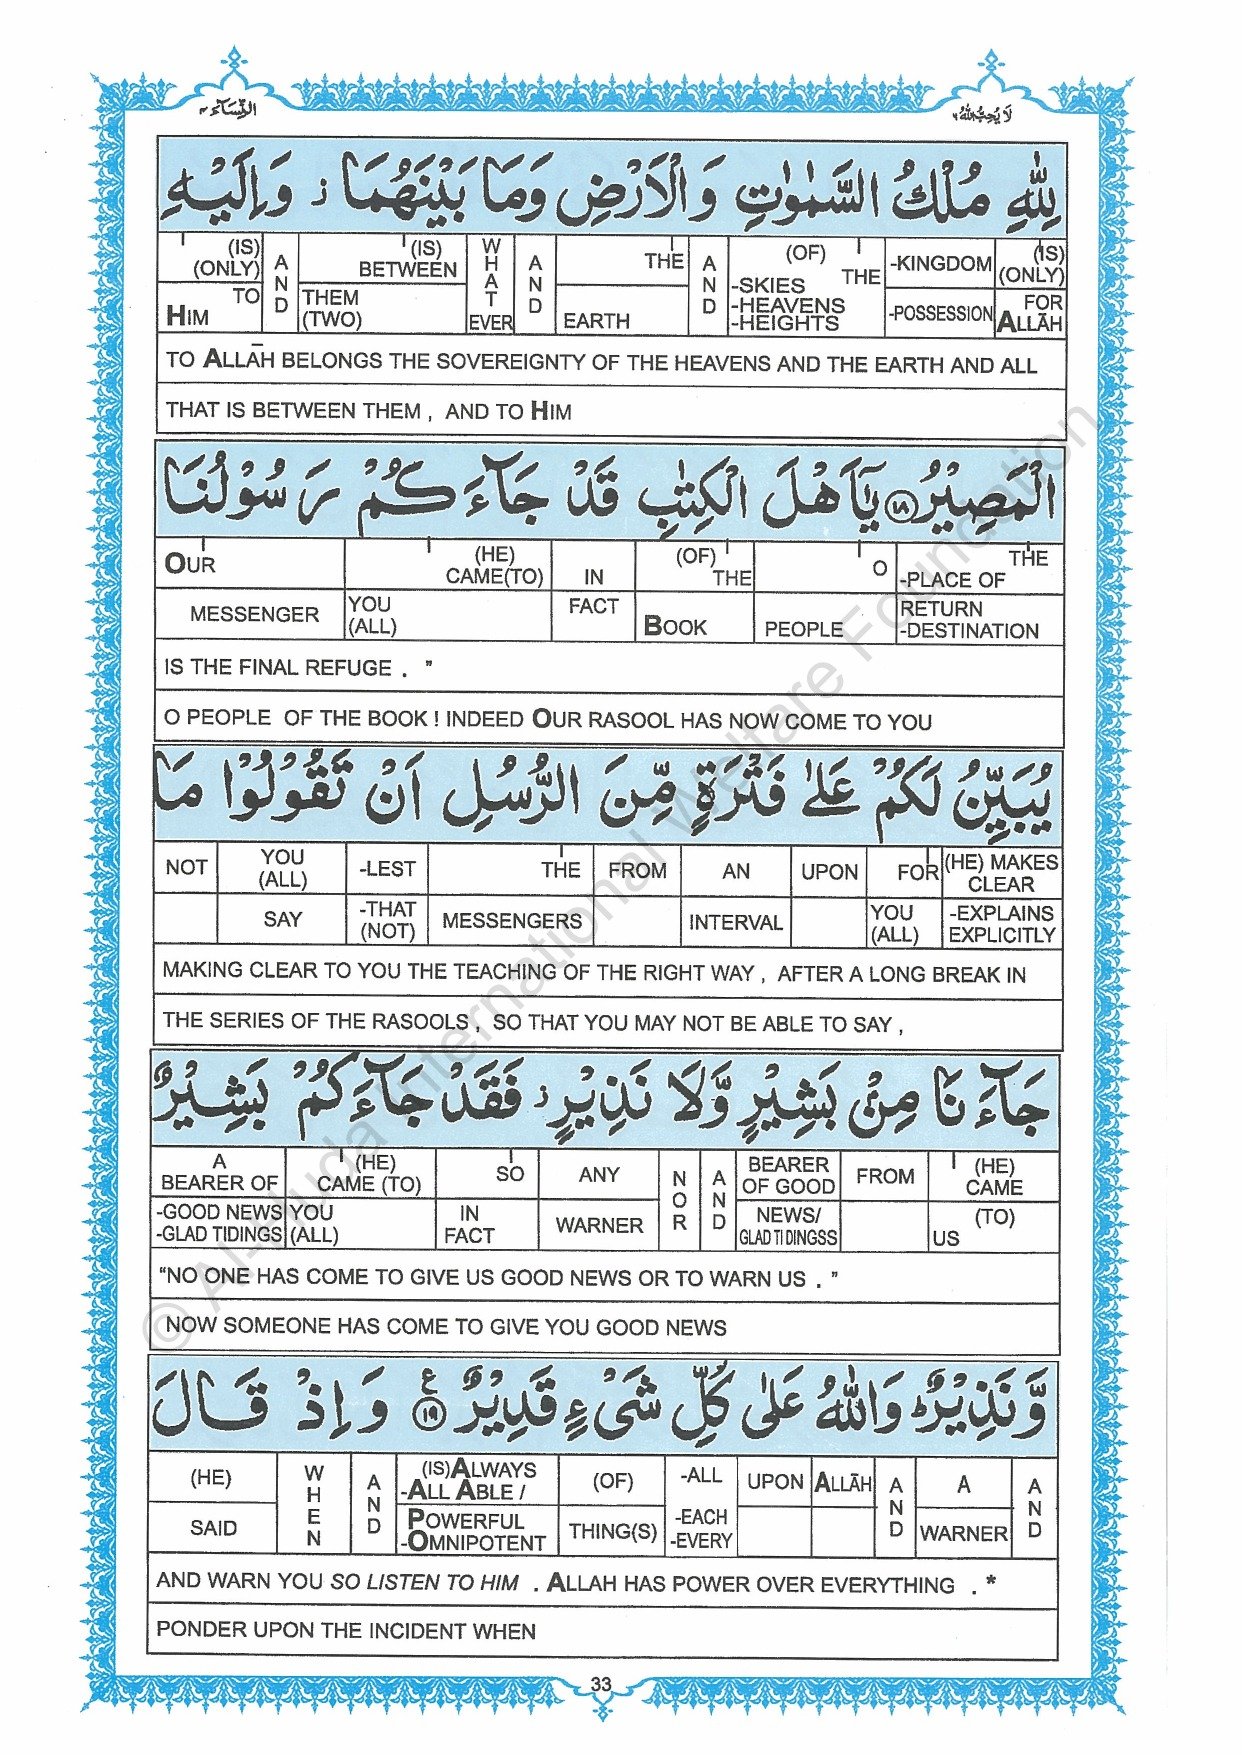 النِّسَآء ٤
لَا يُحِبُّ اللهُ ٦
لِلّٰهِ مُلْكُ السَّمٰوٰتِ وَالْاَرْضِ وَمَا بَيْنَهُمَا ز وَاِلَيْهِ
(IS) (ONLY) AND (IS) BETWEEN WHAT AND THE AND (OF) THE -KINGDOM (IS) (ONLY)
TO HIM THEM (TWO) EVER EARTH -SKIES -HEAVENS -HEIGHTS -POSSESSION FOR ALLĀH
TO ALLĀH BELONGS THE SOVEREIGNTY OF THE HEAVENS AND THE EARTH AND ALL
THAT IS BETWEEN THEM , AND TO HIM
الْمَصِيْرُ ۝١٨ يٰٓاَهْلَ الْكِتٰبِ قَدْ جَآءَكُمْ رَسُوْلُنَا
OUR (HE) CAME(TO) IN (OF) THE O THE -PLACE OF
MESSENGER YOU (ALL) FACT BOOK PEOPLE RETURN -DESTINATION
IS THE FINAL REFUGE . "
O PEOPLE OF THE BOOK ! INDEED OUR RASOOL HAS NOW COME TO YOU
يُبَيِّنُ لَكُمْ عَلٰى فَتْرَةٍ مِّنَ الرُّسُلِ اَنْ تَقُوْلُوْا مَا
NOT YOU (ALL) -LEST THE FROM AN UPON FOR (HE) MAKES CLEAR
SAY -THAT (NOT) MESSENGERS INTERVAL YOU (ALL) -EXPLAINS EXPLICITLY
MAKING CLEAR TO YOU THE TEACHING OF THE RIGHT WAY , AFTER A LONG BREAK IN
THE SERIES OF THE RASOOLS , SO THAT YOU MAY NOT BE ABLE TO SAY ,
جَآءَنَا مِنْۢ بَشِيْرٍ وَّلَا نَذِيْرٍ ز فَقَدْ جَآءَكُمْ بَشِيْرٌ
A BEARER OF (HE) CAME (TO) SO ANY NOR AND BEARER OF GOOD FROM (HE) CAME
-GOOD NEWS -GLAD TIDINGS YOU (ALL) IN FACT WARNER NEWS/ GLAD TIDINGSS (TO) US
"NO ONE HAS COME TO GIVE US GOOD NEWS OR TO WARN US . "
NOW SOMEONE HAS COME TO GIVE YOU GOOD NEWS
وَّنَذِيْرٌ ؕ وَاللّٰهُ عَلٰى كُلِّ شَىْءٍ قَدِيْرٌ ۝١٩ ع وَاِذْ قَالَ
(HE) WHEN AND (IS)ALWAYS -ALL ABLE / (OF) -ALL UPON ALLĀH AND A AND
SAID POWERFUL -OMNIPOTENT THING(S) -EACH -EVERY WARNER
AND WARN YOU SO LISTEN TO HIM . ALLAH HAS POWER OVER EVERYTHING . *
PONDER UPON THE INCIDENT WHEN
33
© Al-Huda International Welfare Foundation